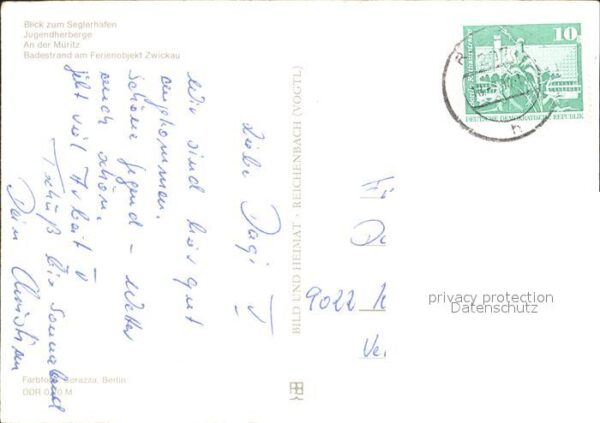 Blick zum Seglerhafen
Jugendherberge
An der Müritz
Badestrand am Ferienobjekt Zwickau
Liebe Dagi!
Wir sind hier gut
angekommen.
Schöne Gegend - Wetter
auch schön.
gibt viel Arbeit!
Tschüß bis Sonnabend
Dein Christian
Farbfoto: Darazzo, Berlin
DDR 0,20 M
BILD UND HEIMAT · REICHENBACH (VOGTL)
10
DEUTSCHE DEMOKRATISCHE REPUBLIK
9022
privacy protection
Datenschutz